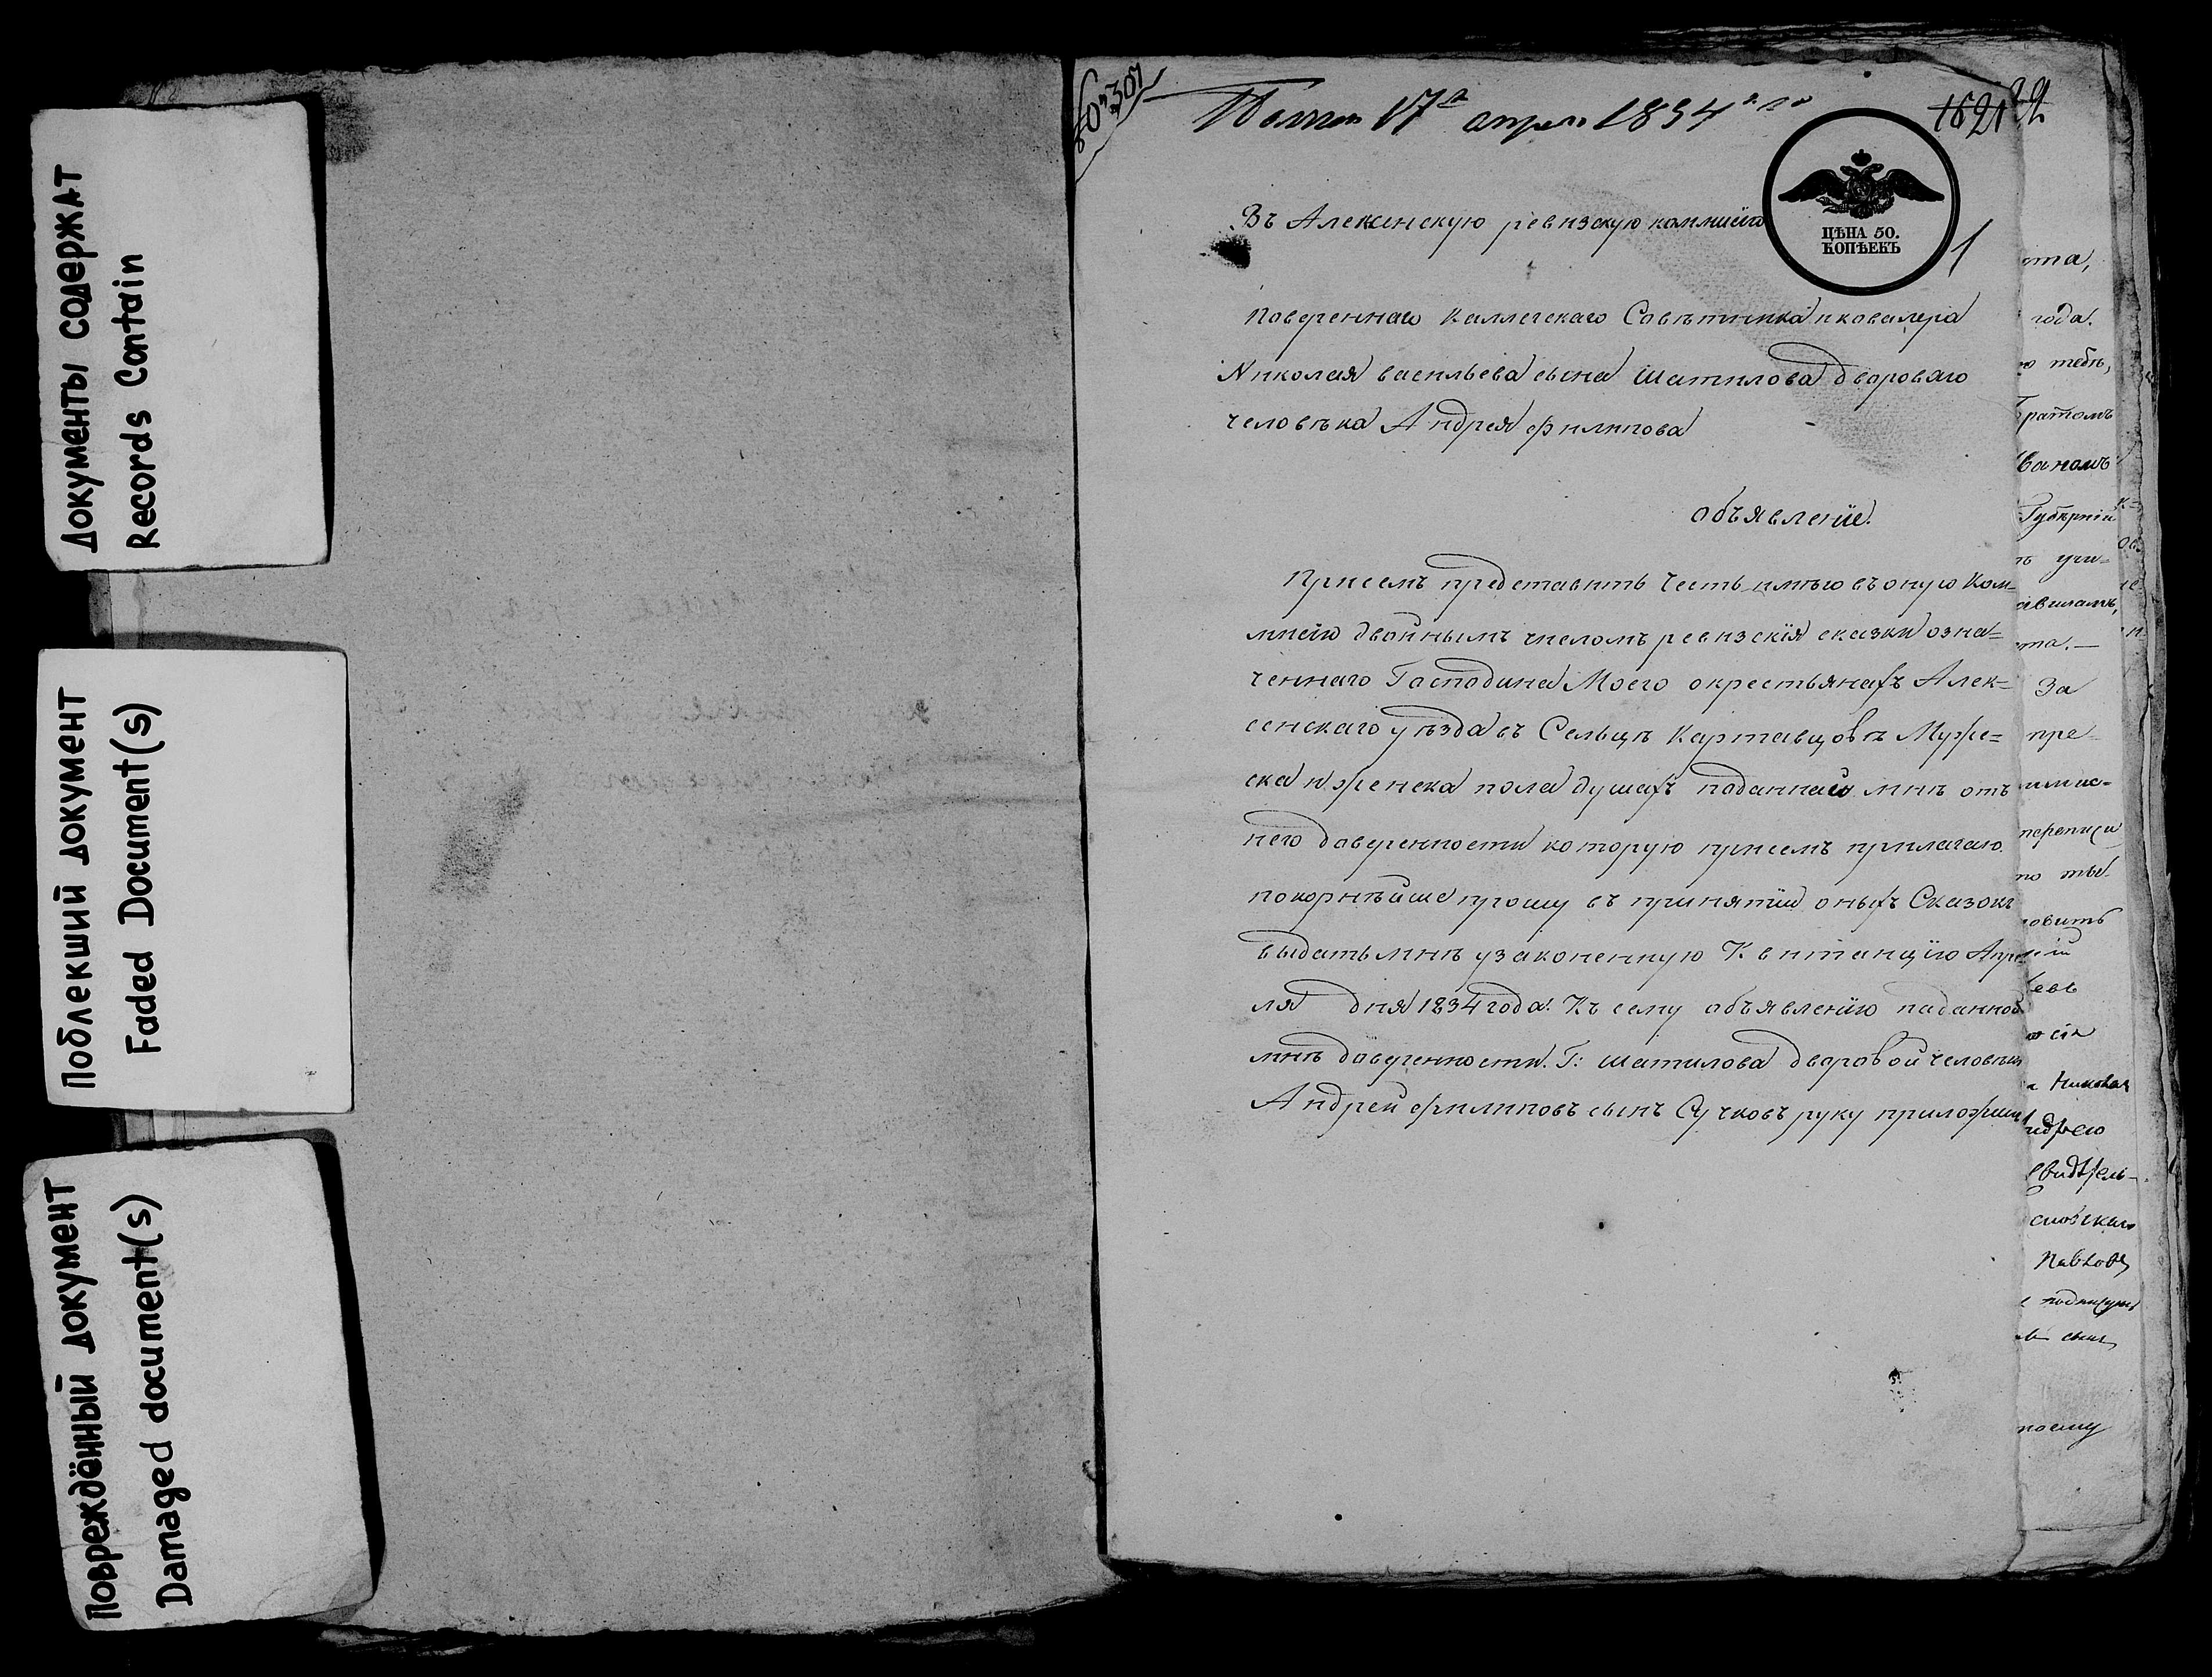 Документы содержат
Records Contain
Поблекший документ
Faded Document(s)
Повреждённый документ
Damaged document(s)
17 апреля 1834
ЦѢНА 50.
КОПѢЕКЪ
1
Въ Алексенскую ревизскую коммисію
повереннаго Каллегскаго Советника и ковалера
Николая васильева сына Шатилова двороваго
человѣка Андрея филипова
объявленіе.
При семъ представить Честь имѣю въ оную Ком=
мисію двойнымъ числомъ ревизскія сказки озна=
ченнаго Господина Моего окрестьянахъ Алек=
сенскаго уѣзда въ Сельцѣ Картавцовѣ Мужс=
ска и женска пола душахъ поданнаго мнѣ отъ
него даверенности которую присемъ прилагаю
покорнѣише прошу въ принятіи оныхъ Сказокъ
выдать мнѣ узаконенную Квитанцію Апре=
ля дня 1834 года. Къ сему объявленію паданной
мнѣ даверенности. Г: шатилова дваровой человѣкъ
Андреи филиповъ сынъ Сучковъ руку приложилъ
года.
тебѣ,
братомъ
Губерніи
За
пре=
переписи
Николая
Павлова
моему